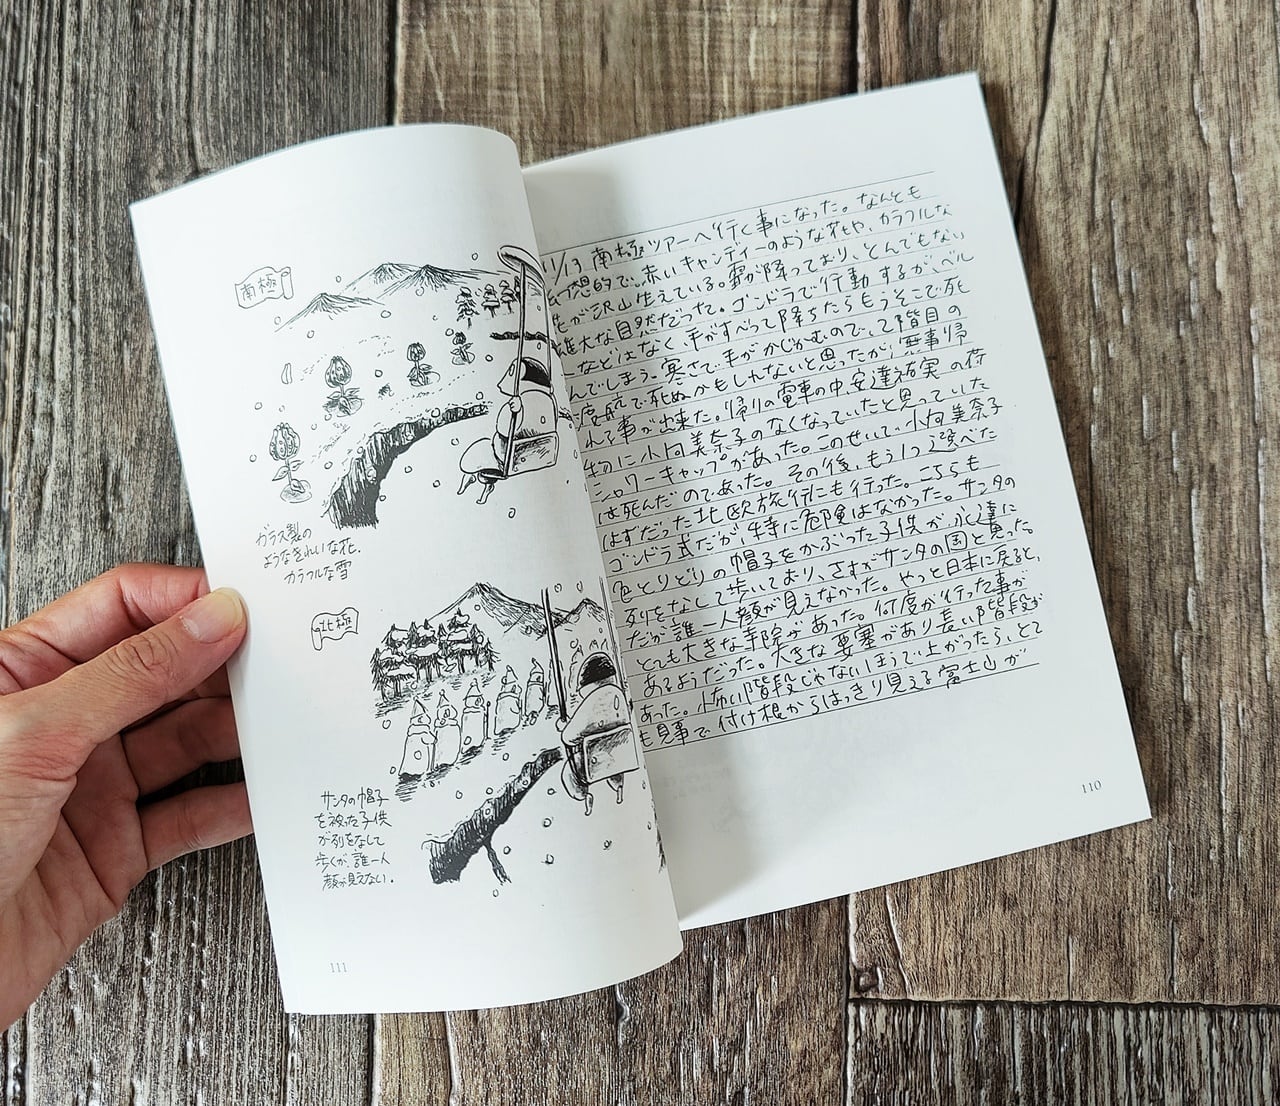 11/13 南極ツアーへ行く事になった。なんとも
想的で、赤いキャンディーのような花や、カラフルな
花が沢山生えている。霧が降っており、とんでもない
雄大な自然だった。ゴンドラで行動するが、ベル
などはなく、手がすべって降ちたらもうそこで死
んでしまう。寒さで手がかじかむので、目の
渡航で死ぬかもしれないと思ったが、無事帰
れて事が出来た。帰りの電車の中安達祐実の荷
物に小向美奈子のなくなっていたと思っていた
シャワーキャップがあった。このせいで、小向美奈子
は死んだのであった。その後、もう1つ選べた
はずだった北欧旅行にも行った。こちらも
ゴンドラ式だが、特に危険はなかった。サンタの
色とりどりの帽子をかぶった子供が永遠に
列をなして歩いており、さすがサンタの国と思った。
だが誰一人顔が見えなかった。やっと日本に戻ると、
とても大きな寺院があった。何度か行った事が
あるようだった。大きな要塞があり長い階段が
あった。怖い階段じゃないほうで上がったら、とて
も見事で付け根からはっきり見える富士山が
110
南極
ガラス製の
ようなきれいな花。
カラフルな雪
北極
サンタの帽子
を被った子供
が列をなして
歩くが、誰一人
顔が見えない。
111